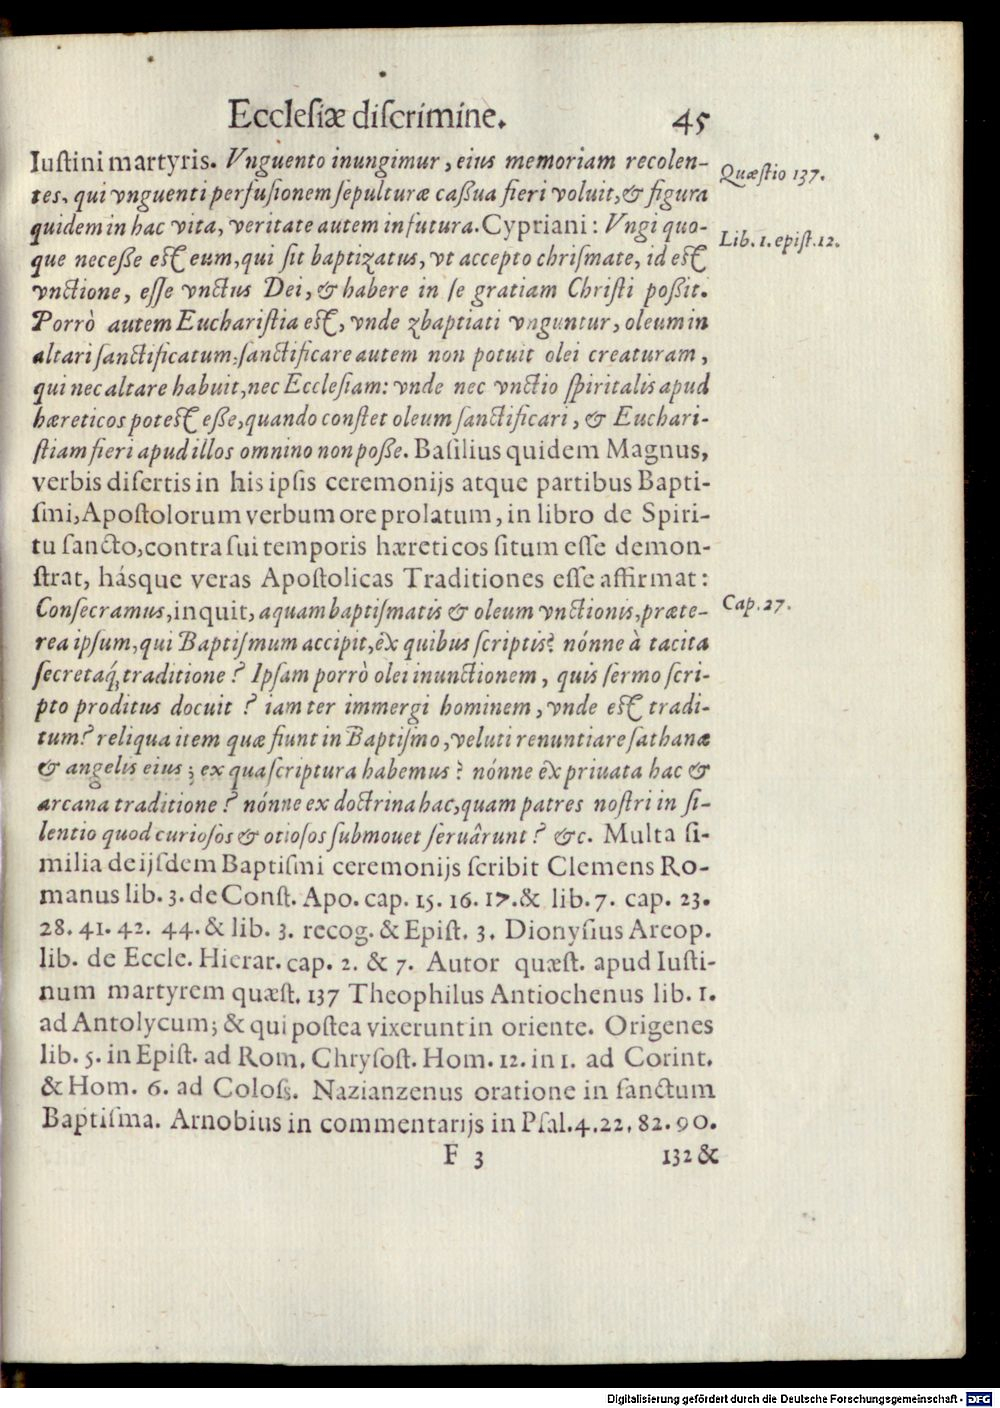 Eccleſiæ diſcrimine. 45
Iuſtini martyris. Vnguento inungimur, eius memoriam recolen-
tes, qui vnguenti perfuſionem ſepulturæ caßua fieri voluit, & figura
quidem in hac vita, veritate autem in futura. Cypriani: Vngi quo-
que neceße eſt eum, qui ſit baptizatus, vt accepto chriſmate, id eſt
vnctione, eſſe vnctus Dei, & habere in ſe gratiam Chriſti poßit.
Porrò autem Euchariſtia eſt, vnde zbaptiati vnguntur, oleum in
altari ſanctificatum: ſanctificare autem non potuit olei creaturam,
qui nec altare habuit, nec Eccleſiam: vnde nec vnctio ſpiritalis apud
hæreticos poteſt eße, quando conſtet oleum ſanctificari, & Euchari-
ſtiam fieri apud illos omnino non poße. Baſilius quidem Magnus,
verbis diſertis in his ipſis ceremonijs atque partibus Bapti-
ſmi, Apoſtolorum verbum ore prolatum, in libro de Spiri-
tu ſancto, contra ſui temporis hæreticos ſitum eſſe demon-
ſtrat, hásque veras Apoſtolicas Traditiones eſſe affirmat:
Conſecramus, inquit, aquam baptiſmatis & oleum vnctionis, præte-
rea ipſum, qui Baptiſmum accipit, êx quibus ſcriptis? nónne à tacita
ſecretaq́; traditione? Ipſam porrò olei inunctionem, quis ſermo ſcri-
pto proditus docuit? iam ter immergi hominem, vnde eſt tradi-
tum? reliqua item quæ fiunt in Baptiſmo, veluti renuntiare ſathanæ
& angelis eius; ex qua ſcriptura habemus? nónne êx priuata hac &
arcana traditione? nónne ex doctrina hac, quam patres noſtri in ſi-
lentio quod curioſos & otioſos ſubmouet ſeruârunt? &c. Multa ſi-
milia de ijſdem Baptiſmi ceremonijs ſcribit Clemens Ro-
manus lib. 3. de Conſt. Apo. cap. 15. 16. 17. & lib. 7. cap. 23.
28. 41. 42. 44. & lib. 3. recog. & Epiſt. 3. Dionyſius Areop.
lib. de Eccle. Hierar. cap. 2. & 7. Autor quæſt. apud Iuſti-
num martyrem quæſt. 137 Theophilus Antiochenus lib. 1.
ad Antolycum; & qui poſtea vixerunt in oriente. Origenes
lib. 5. in Epiſt. ad Rom. Chryſoſt. Hom. 12. in 1. ad Corint.
& Hom. 6. ad Coloſſ. Nazianzenus oratione in ſanctum
Baptiſma. Arnobius in commentarijs in Pſal. 4. 22. 82. 90.
F 3 132 &
Quæſtio 137.
Lib. 1. epiſt. 12.
Cap. 27.
Digitalisierung gefördert durch die Deutsche Forschungsgemeinschaft - DFG